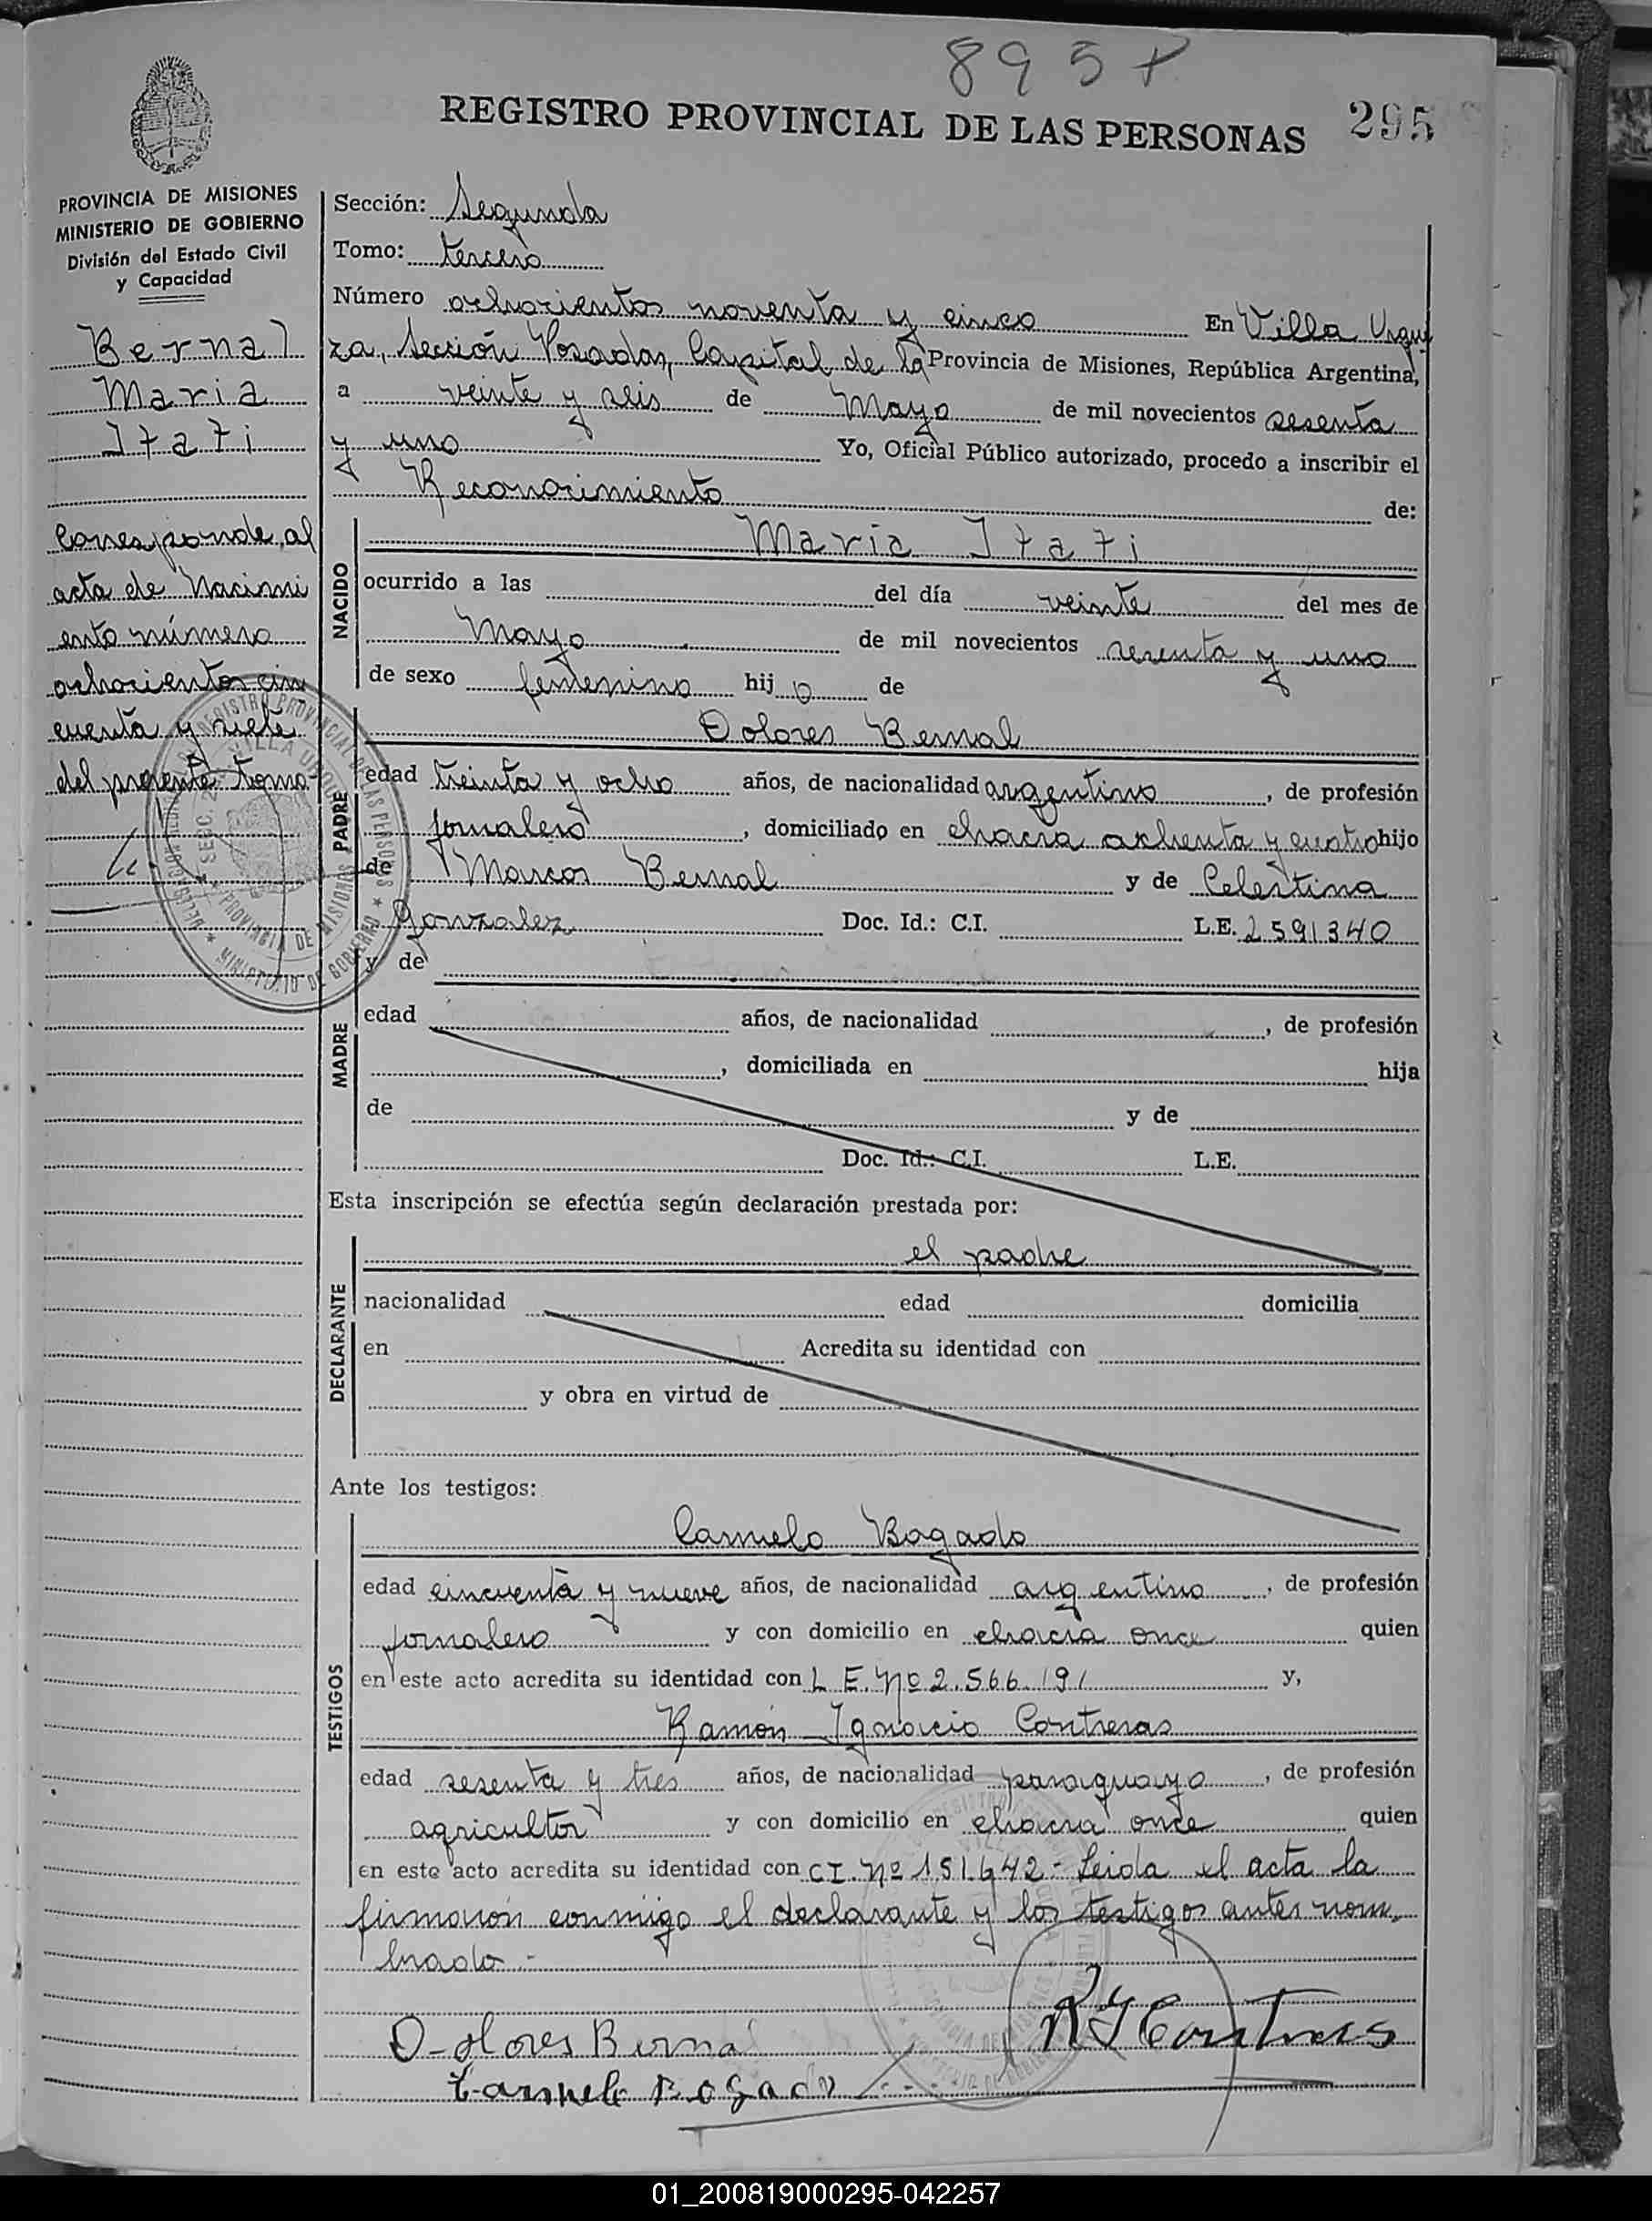 895
REGISTRO PROVINCIAL DE LAS PERSONAS 295
PROVINCIA DE MISIONES
MINISTERIO DE GOBIERNO
División del Estado Civil
y Capacidad
Bernal
Maria
Itati
Corresponde al
acta de Nacimi
ento número
ochocientos cin
cuenta y siete
del presente tomo-
Sección: Segunda
Tomo: tercero
Número ochocientos noventa y cinco En Villa Urqui
za, Sección Posadas, Capital de la Provincia de Misiones, República Argentina,
a veinte y seis de Mayo de mil novecientos sesenta
y uno Yo, Oficial Público autorizado, procedo a inscribir el
Reconocimiento de:
NACIDO
Maria Itati
ocurrido a las del día veinte del mes de
Mayo de mil novecientos sesenta y uno
de sexo femenino hij o de
PADRE
Dolores Bernal
edad treinta y ocho años, de nacionalidad argentino, de profesión
jornalero, domiciliado en chacra ochenta y cuatro hijo
de Marcos Bernal y de Celestina
Gonzalez Doc. Id.: C.I. L.E. 2591340
MADRE
y de
edad años, de nacionalidad , de profesión
, domiciliada en hija
de y de
Doc. Id.: C.I. L.E.
Esta inscripción se efectúa según declaración prestada por:
DECLARANTE
el padre
nacionalidad edad domicilia
en Acredita su identidad con
y obra en virtud de
Ante los testigos:
TESTIGOS
Carmelo Bogado
edad cincuenta y nueve años, de nacionalidad argentino, de profesión
jornalero y con domicilio en chacra once quien
en este acto acredita su identidad con L E. Nº 2.566.191 y,
Ramón Ignacio Contreras
edad sesenta y tres años, de nacionalidad paraguayo, de profesión
agricultor y con domicilio en chacra once quien
en este acto acredita su identidad con C I. Nº 151.642- Leida el acta la
firmaron conmigo el declarante y los testigos antes nom-
brado-
Dolores Bernal
R I Contreras
Carmelo Bogado
01_200819000295-042257